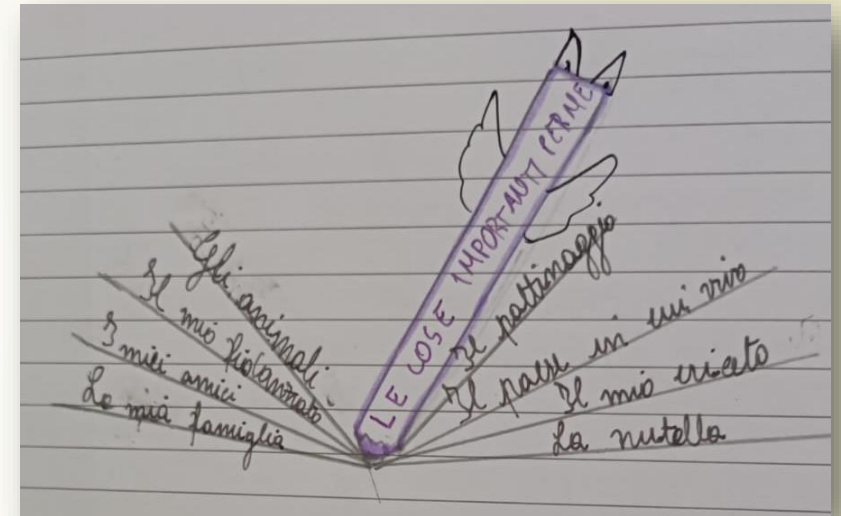 LE COSE IMPORTANTI PER ME
Gli animali
Il mio fidanzato
I miei amici
La mia famiglia
Il pattinaggio
Il paese in cui vivo
Il mio criceto
La nutella